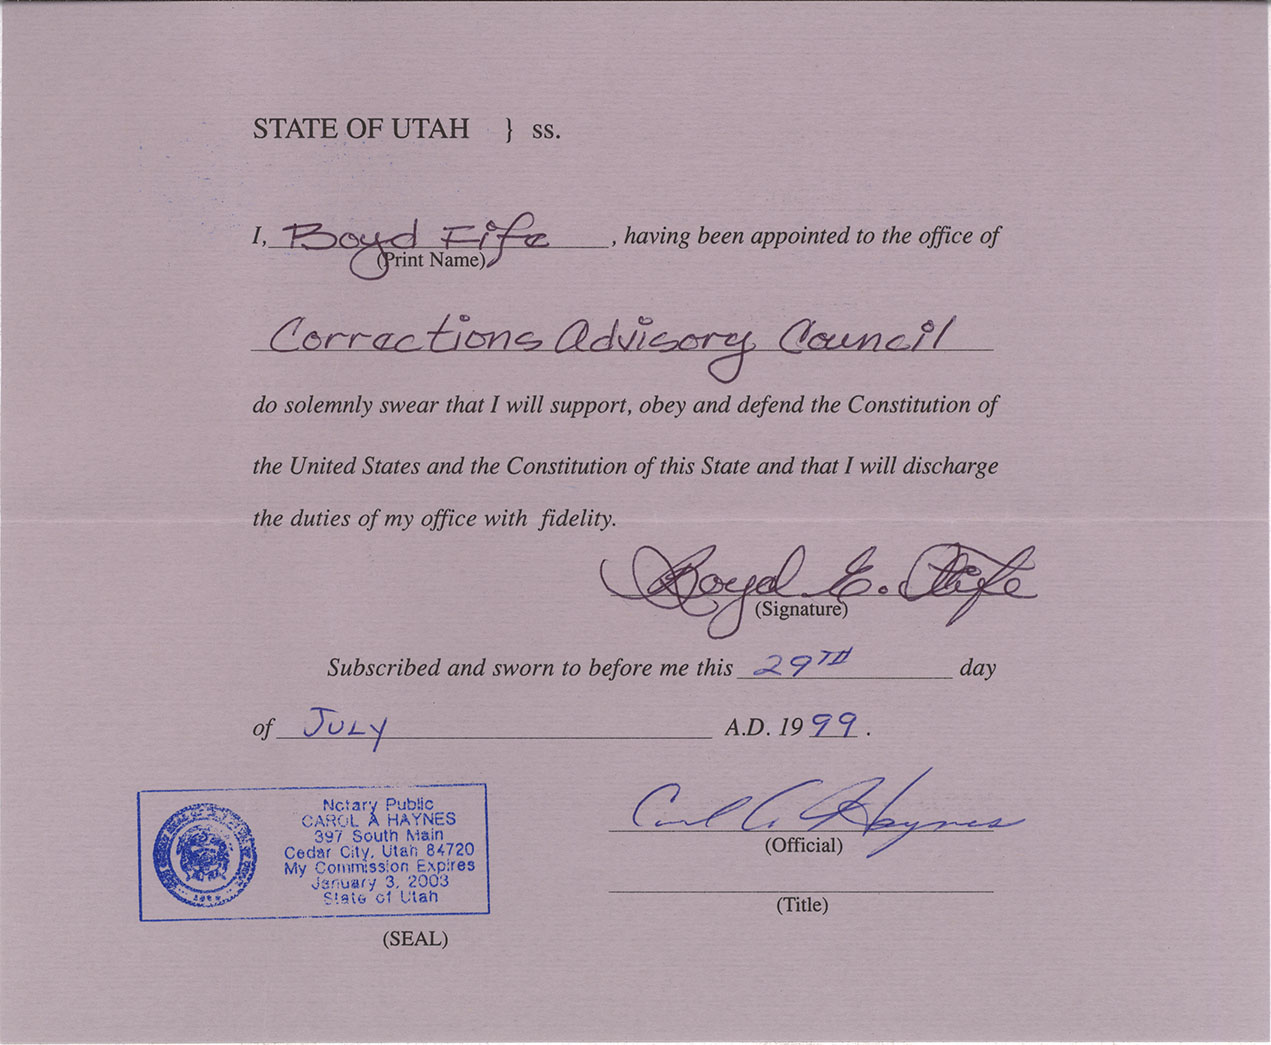 STATE OF UTAH } ss.
I, Boyd Fife, having been appointed to the office of
(Print Name)
Corrections Advisory Council
do solemnly swear that I will support, obey and defend the Constitution of
the United States and the Constitution of this State and that I will discharge
the duties of my office with fidelity.
Boyd E. Fife
(Signature)
Subscribed and sworn to before me this 29TH day
of JULY A.D. 1999.
Carol A Haynes
(Official)
(Title)
Notary Public
CAROL A HAYNES
397 South Main
Cedar City, Utah 84720
My Commission Expires
January 3, 2003
State of Utah
(SEAL)